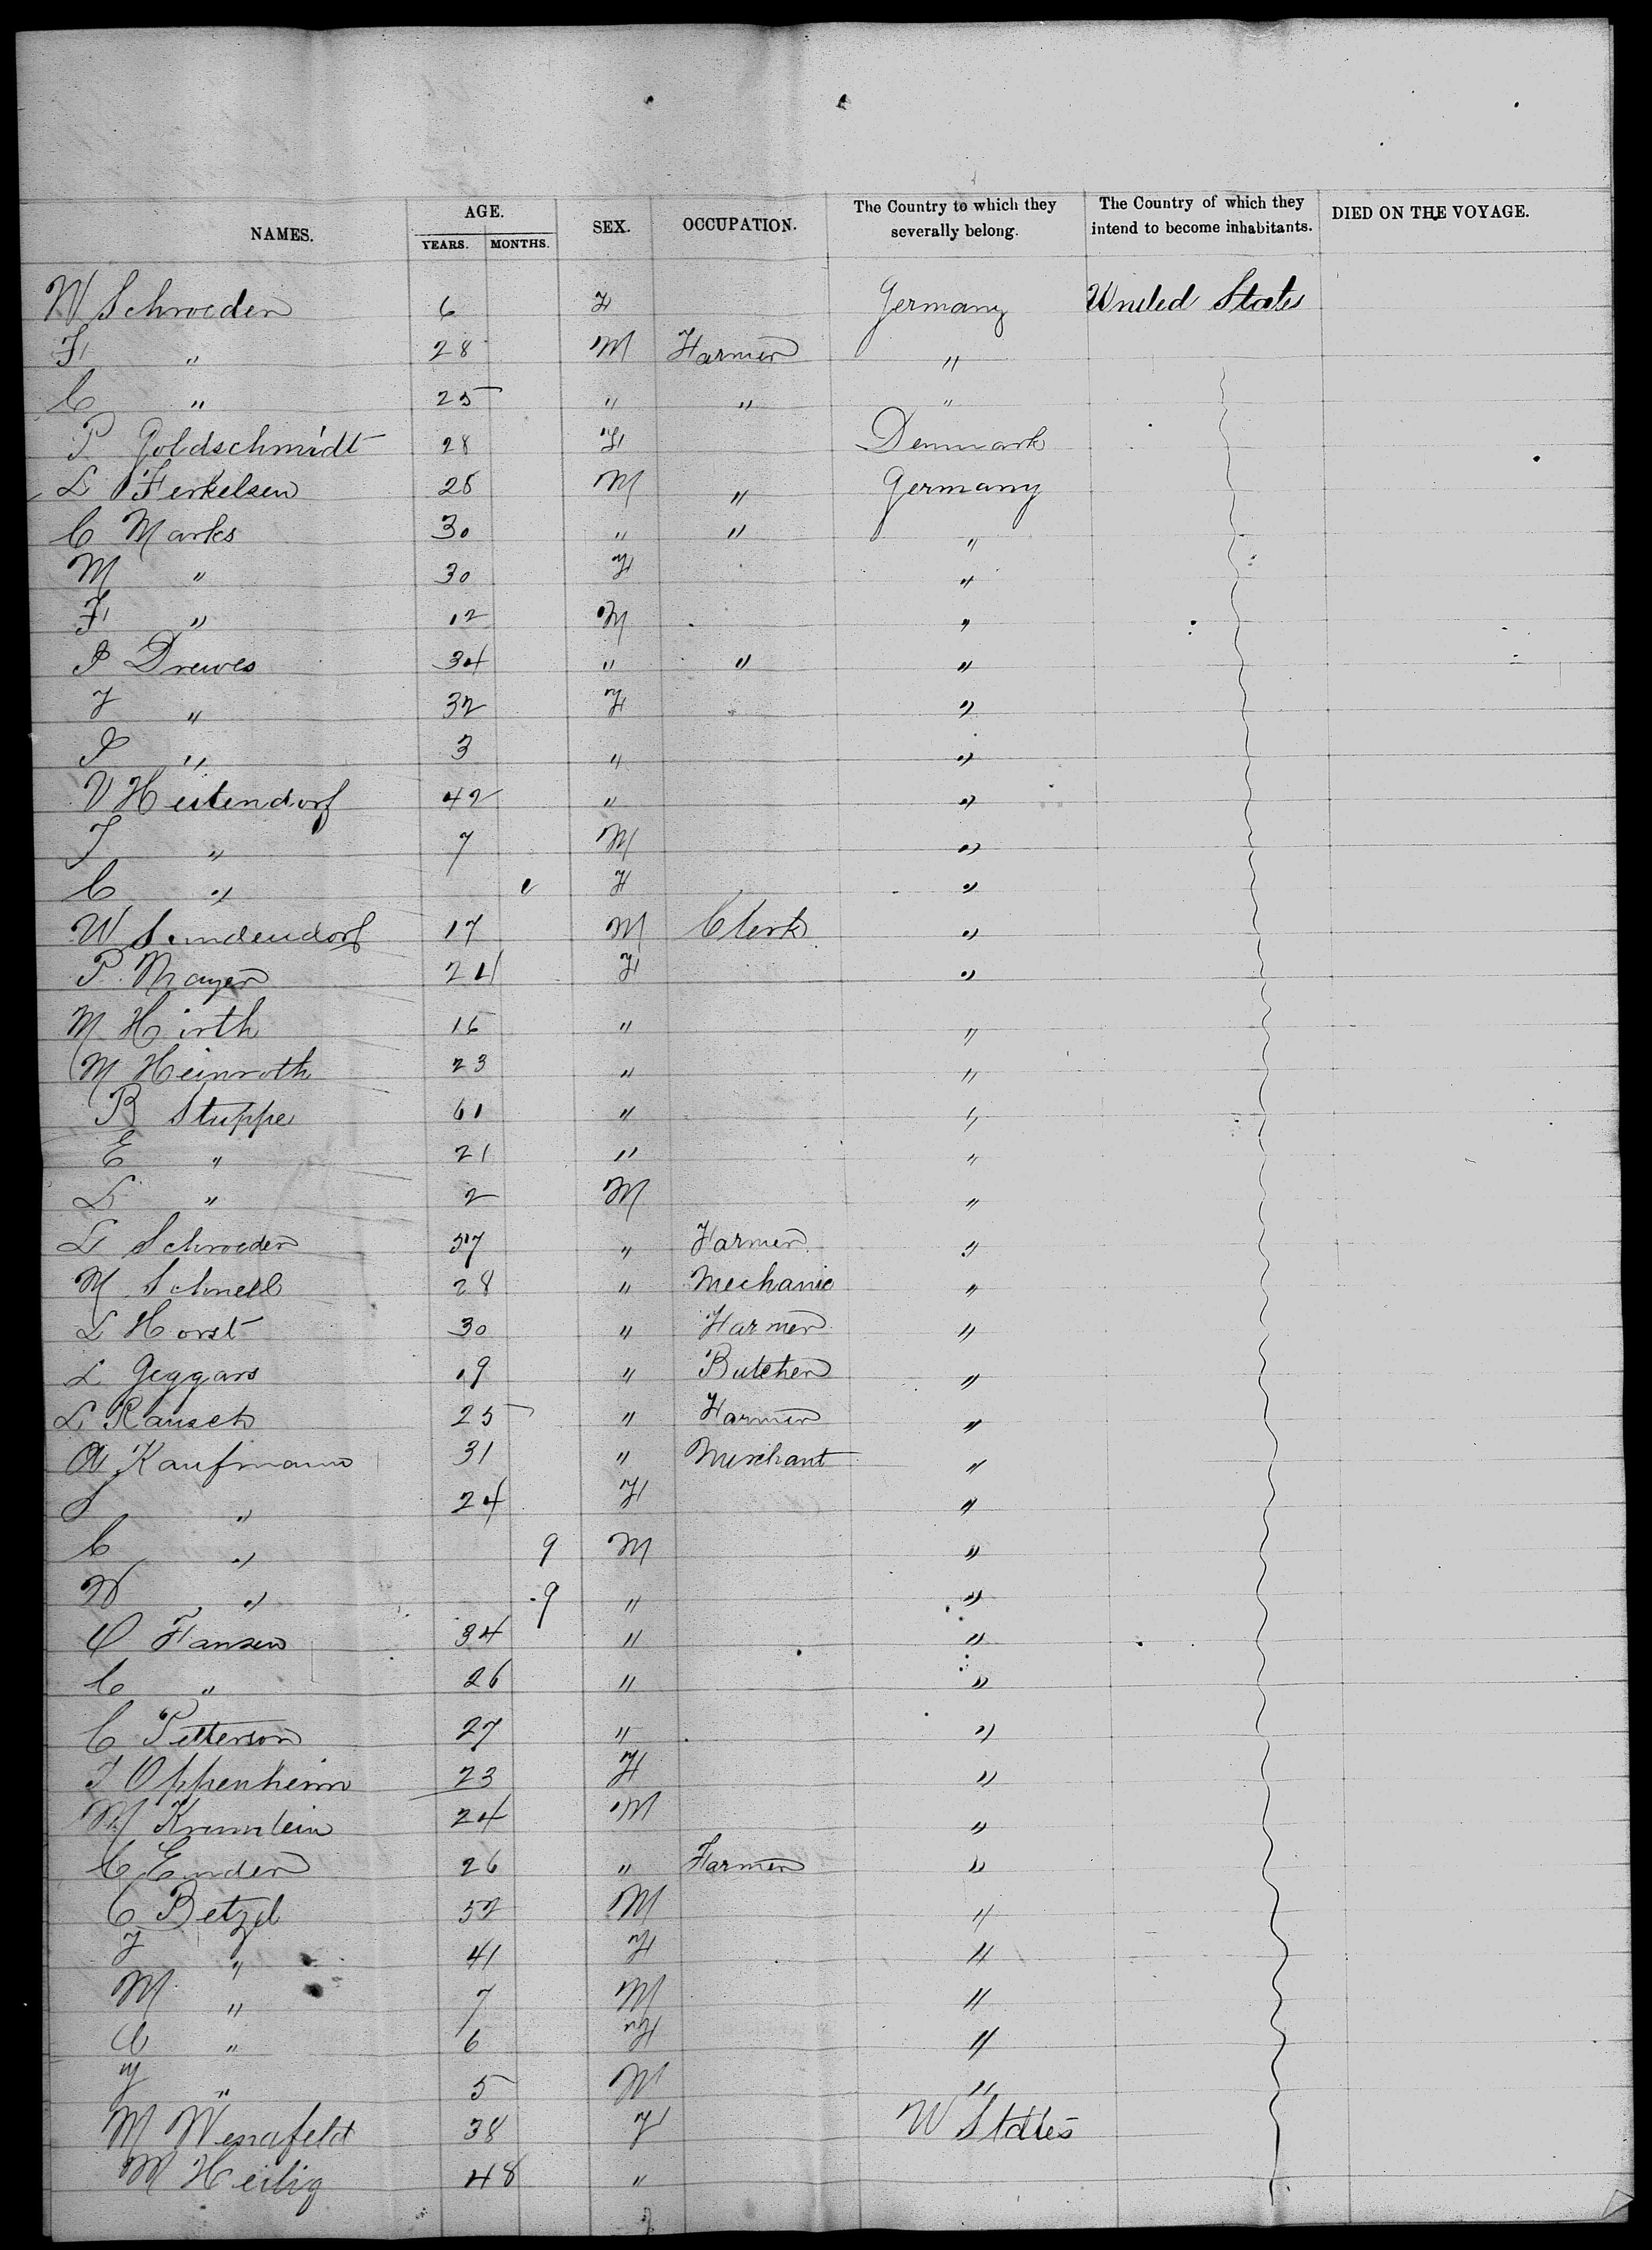 NAMES. AGE. YEARS. MONTHS. SEX. OCCUPATION. The Country to which they severally belong. The Country of which they intend to become inhabitants. DIED ON THE VOYAGE.
W Schroeder 6 F Germany United States
F " 28 M Farmer "
C " 25 " " "
P Goldschmidt 28 F Denmark
L Ferkelsen 28 M " Germany
C Marks 30 " " "
M " 30 F "
F " 12 M "
P Drewes 34 " " "
J " 32 F "
P " 3 " "
V Heitendorf 42 " "
J " 7 M "
C " F "
W Lindendorf 17 M Clerk "
P Mayer 21 F "
M Hirth 16 " "
M Heinroth 23 " "
B Stuppe 61 " "
E " 21 " "
L " 2 M "
L Schroeder 57 " Farmer "
M Schnell 28 " Mechanic "
L Horst 30 " Farmer "
L Geggars 19 " Butcher "
L Rausch 25 " Farmer "
A Kaufmann 31 " Merchant "
S " 24 F "
C " 9 M "
W " 9 " "
O Hansen 34 " "
C " 26 " "
C Petterson 27 " "
J Oppenheim 23 F "
M Krumlein 24 M "
C Emder 26 " Farmer "
C Betzel 52 M "
J " 41 F "
M " 7 M "
C " 6 F "
J " 5 M "
M 38 F U States
M Heilig 48 "